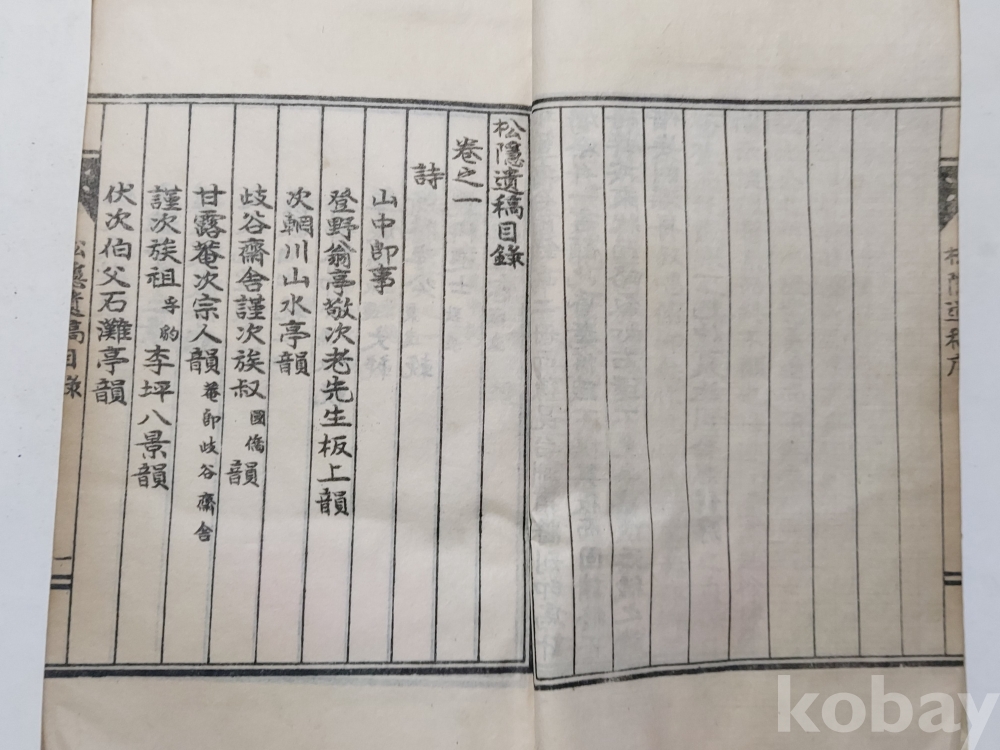 松隱遺稿目錄
卷之一
詩
山中卽事
登野翁亭敬次老先生板上韻
次輞川山水亭韻
歧谷齋舍謹次族叔國僑韻
甘露菴次宗人韻菴卽歧谷齋舍
謹次族祖李坪八景韻
伏次伯父石灘亭韻
松隱遺稿目錄
松隱遺稿序
kobay